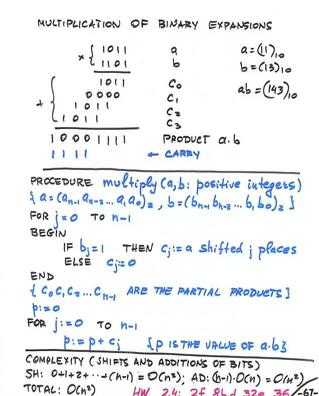 MULTIPLICATION OF BINARY EXPANSIONS
× { 1011 a a=(11)₁₀
1101 b b=(13)₁₀
1011 C₀ ab=(143)₁₀
+ { 0000 C₁
1011 C₂
1011 C₃
1 0 0 0 1 1 1 1 PRODUCT a.b
1 1 1 1 ← CARRY
PROCEDURE multiply (a,b: positive integers)
{ a=(aₙ₋₁ aₙ₋₂... a₁ a₀)₂, b=(bₙ₋₁ bₙ₋₂... b₁ b₀)₂ }
FOR j=0 TO n-1
BEGIN
IF bⱼ=1 THEN cⱼ:=a shifted j places
ELSE cⱼ:=0
END
{ C₀ C₁ C₂ ... Cₙ₋₁ ARE THE PARTIAL PRODUCTS }
p:=0
FOR j:=0 TO n-1
p:= p+cⱼ {p IS THE VALUE OF a.b}
COMPLEXITY (SHIFTS AND ADDITIONS OF BITS)
SH: 0+1+2+...+(n-1) = O(n²); AD: (n-1).O(n) = O(n²)
TOTAL: O(n²) HW 2.4: 2f 8bd 32a 36 -67-